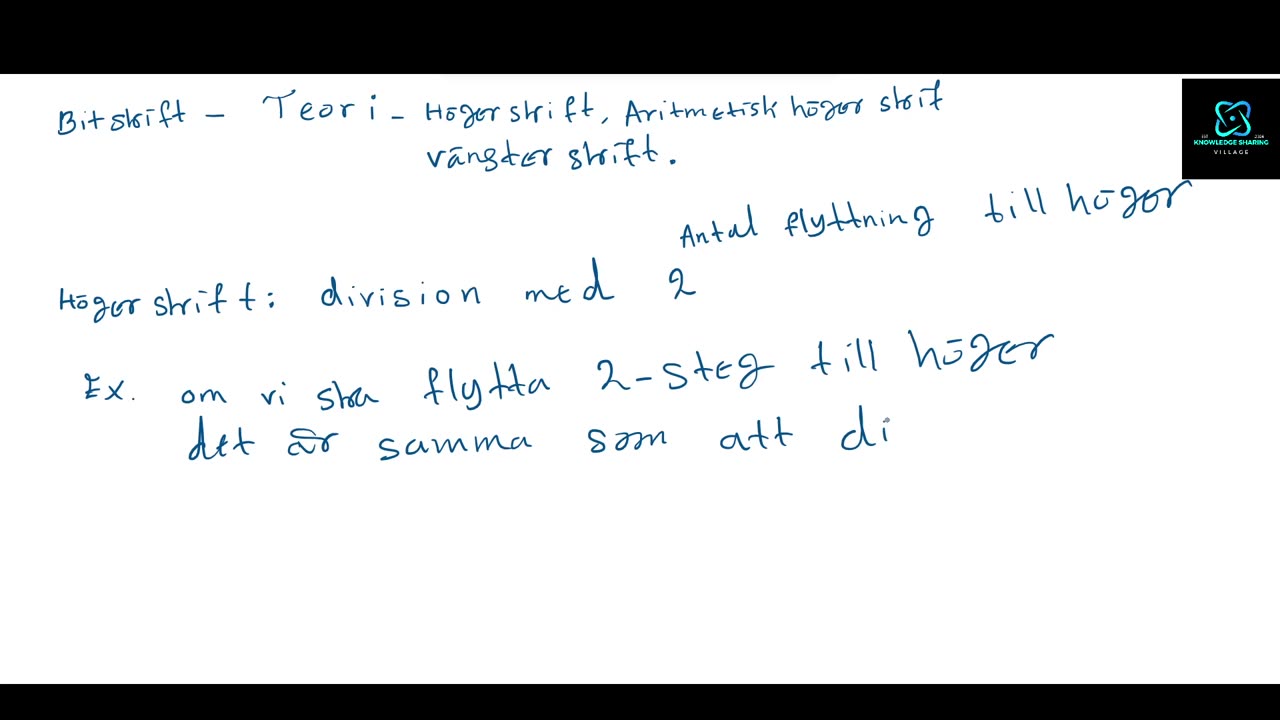 Bitskift - Teori - Högerskift, Aritmetisk höger skif
vängster skift.
Antal flyttning till höger
Högerskift: division med 2
Ex. om vi ska flytta 2-steg till höger
det är samma som att di
KNOWLEDGE SHARING
VILLAGE